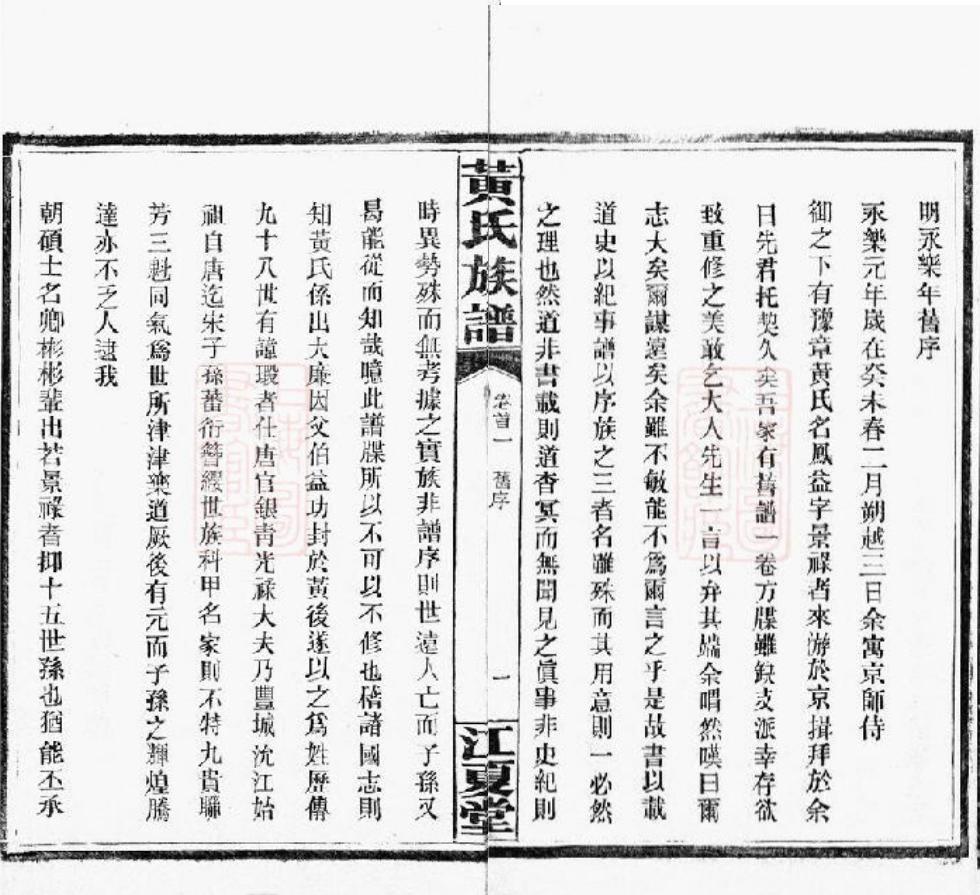 明永樂年舊序
永樂元年歲在癸未春二月朔越三日余寓京師侍
御之下有豫章黃氏名鳳益字景祿者來游於京揖拜於余
曰先君托契久矣吾家有舊譜一卷方牒雖缺支派幸存欲
致重修之美敢乞大人先生一言以弁其端余喟然嘆曰爾
志大矣爾謀遠矣余雖不敏能不爲爾言之乎是故書以載
道史以紀事譜以序族之三者名雖殊而其用意則一必然
之理也然道非書載則道杳冥而無聞見之眞事非史紀則
黃氏族譜
卷首一
舊序
一
江夏堂
時異勢殊而無考據之實族非譜序則世遠人亡而子孫又
曷能從而知哉噫此譜牒所以不可以不修也稽諸國志則
知黃氏係出大廉因父伯益功封於黃後遂以之爲姓歷傳
九十八世有諱環者仕唐官銀靑光祿大夫乃豐城沈江始
祖自唐迄宋子孫蕃衍簪纓世族科甲名家則不特九貴聯
芳三魁同氣爲世所津津樂道厥後有元而子孫之輝煌騰
達亦不乏人逮我
朝碩士名卿彬彬輩出若景祿者抑十五世孫也猶能丕承